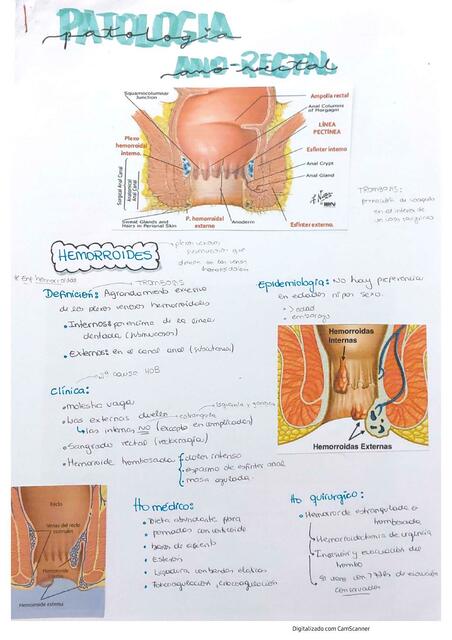 PATOLOGIA
patologia
ANO-RECTAL
ano-rectal
Squamocolumnar
Junction
Ampolla rectal
Anal Columns
of Morgagni
LÍNEA
PECTÍNEA
Plexo
hemorroidal
interno.
Esfinter interno
Anal Crypt
Anal Gland
Surgical Anal Canal
Anatomical
Anal Canal
Sweat Glands and
Hairs in Perianal Skin
P. hemorroidal
externo
Anoderm
Esfinter externo.
TROMBOSIS:
HEMORROIDES
TROMBOSIS
Definición: Agrandamiento excesivo
de los plexos venosos hemorroidales
• Internos: por encima de la línea
dentada (submucosos)
• Externos: en el canal anal (subcutáneos)
Epidemiología: No hay preferencia
en edades ni por sexo.
• > edad
• embarazo
Hemorroidas
Internas
Hemorroidas Externas
Clínica:
1ª causa HDB
• molestia vaga
• Las externas duelen
↳ las internas NO (excepto en complicadas)
• Sangrado rectal (rectorragia)
• Hemorroide trombosada
dolor intenso
espasmo de esfinter anal
masa azulada.
Recto
Venas del recto
normales
Hemorroide
interna
Hemorroide externa
Tto médico:
• Dieta abundante fibra
• pomadas con corticoide
• baños de asiento
• Esteroides
• Ligadura con bandas elásticas
• Fotocoagulación, criocoagulación
Tto quirúrgico:
• Hemorroide estrangulada o
trombosada
Hemorroidectomía de urgencia
Incisión y evacuación del
trombo
conservador
Digitalizado com CamScanner